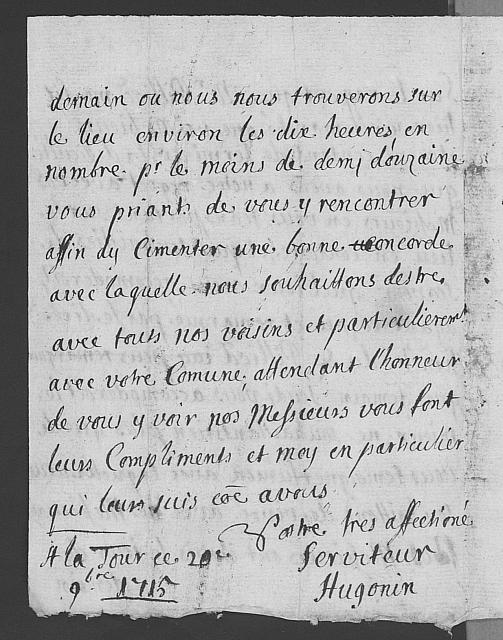 demain ou nous nous trouverons sur
le lieu environ les dix heures, en
nombre pr le moins de demj douzaine
vous priants de vous y rencontrer
affin dy Cimenter une bonne concorde
avec laquelle nous souhaittons destre
avec touts nos voisins et particulierent
avec votre Comune, attendant lhonneur
de vous y voir nos Messieurs vous font
leurs Compliments et moy en particulier
qui leurs suis coe avous
Vostre tres affectioné
A la Tour ce 20e Serviteur
9bre 1715 Hugonin